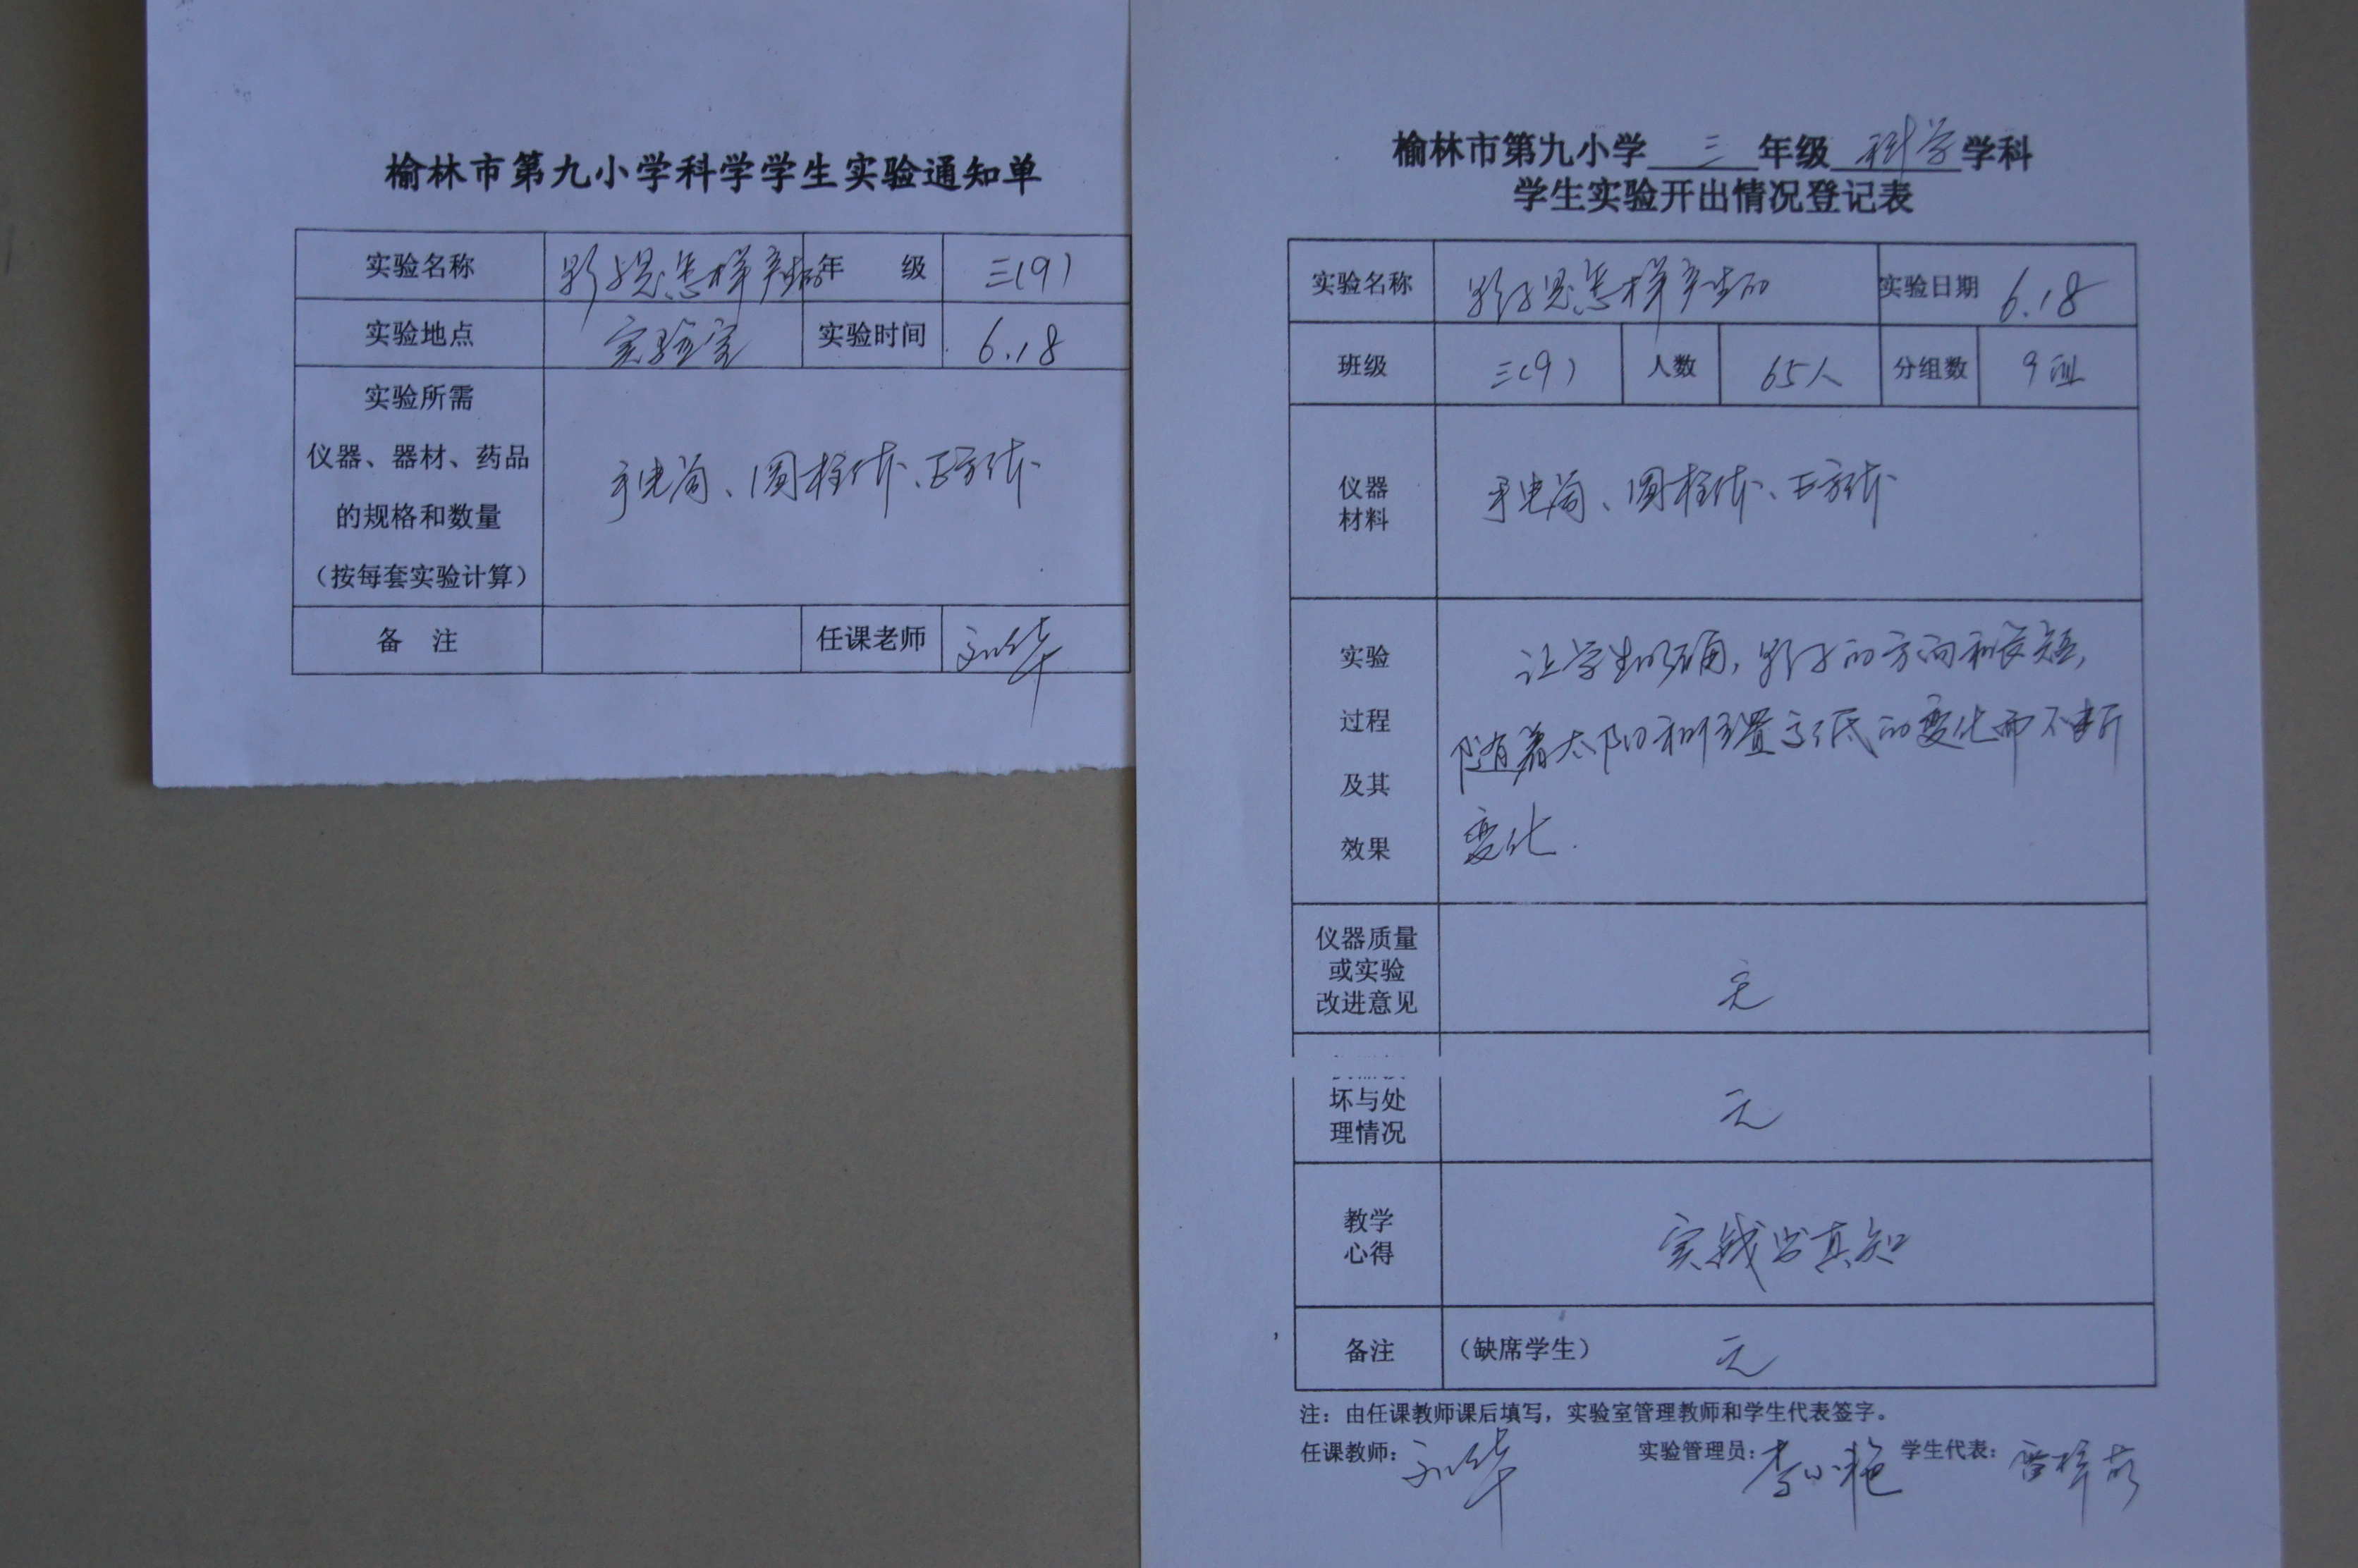 榆林市第九小学科学学生实验通知单
实验名称 影子是怎样产生的 年 级 三(9)
实验地点 实验室 实验时间 6.18
实验所需
仪器、器材、药品
的规格和数量
(按每套实验计算)
手电筒、圆柱体、正方体
备 注 任课老师 刘华
榆林市第九小学 三 年级 科学 学科
学生实验开出情况登记表
实验名称 影子是怎样产生的 实验日期 6.18
班级 三(9) 人数 65人 分组数 9组
仪器
材料
手电筒、圆柱体、正方体
实验
过程
及其
效果
让学生明确,影子的方向和长短,
随着太阳和位置高低的变化而不断
变化.
仪器质量
或实验
改进意见
无
坏与处
理情况
无
教学
心得
实践出真知
备注 (缺席学生) 无
注:由任课教师课后填写,实验室管理教师和学生代表签字。
任课教师:刘华 实验管理员:李小艳 学生代表: